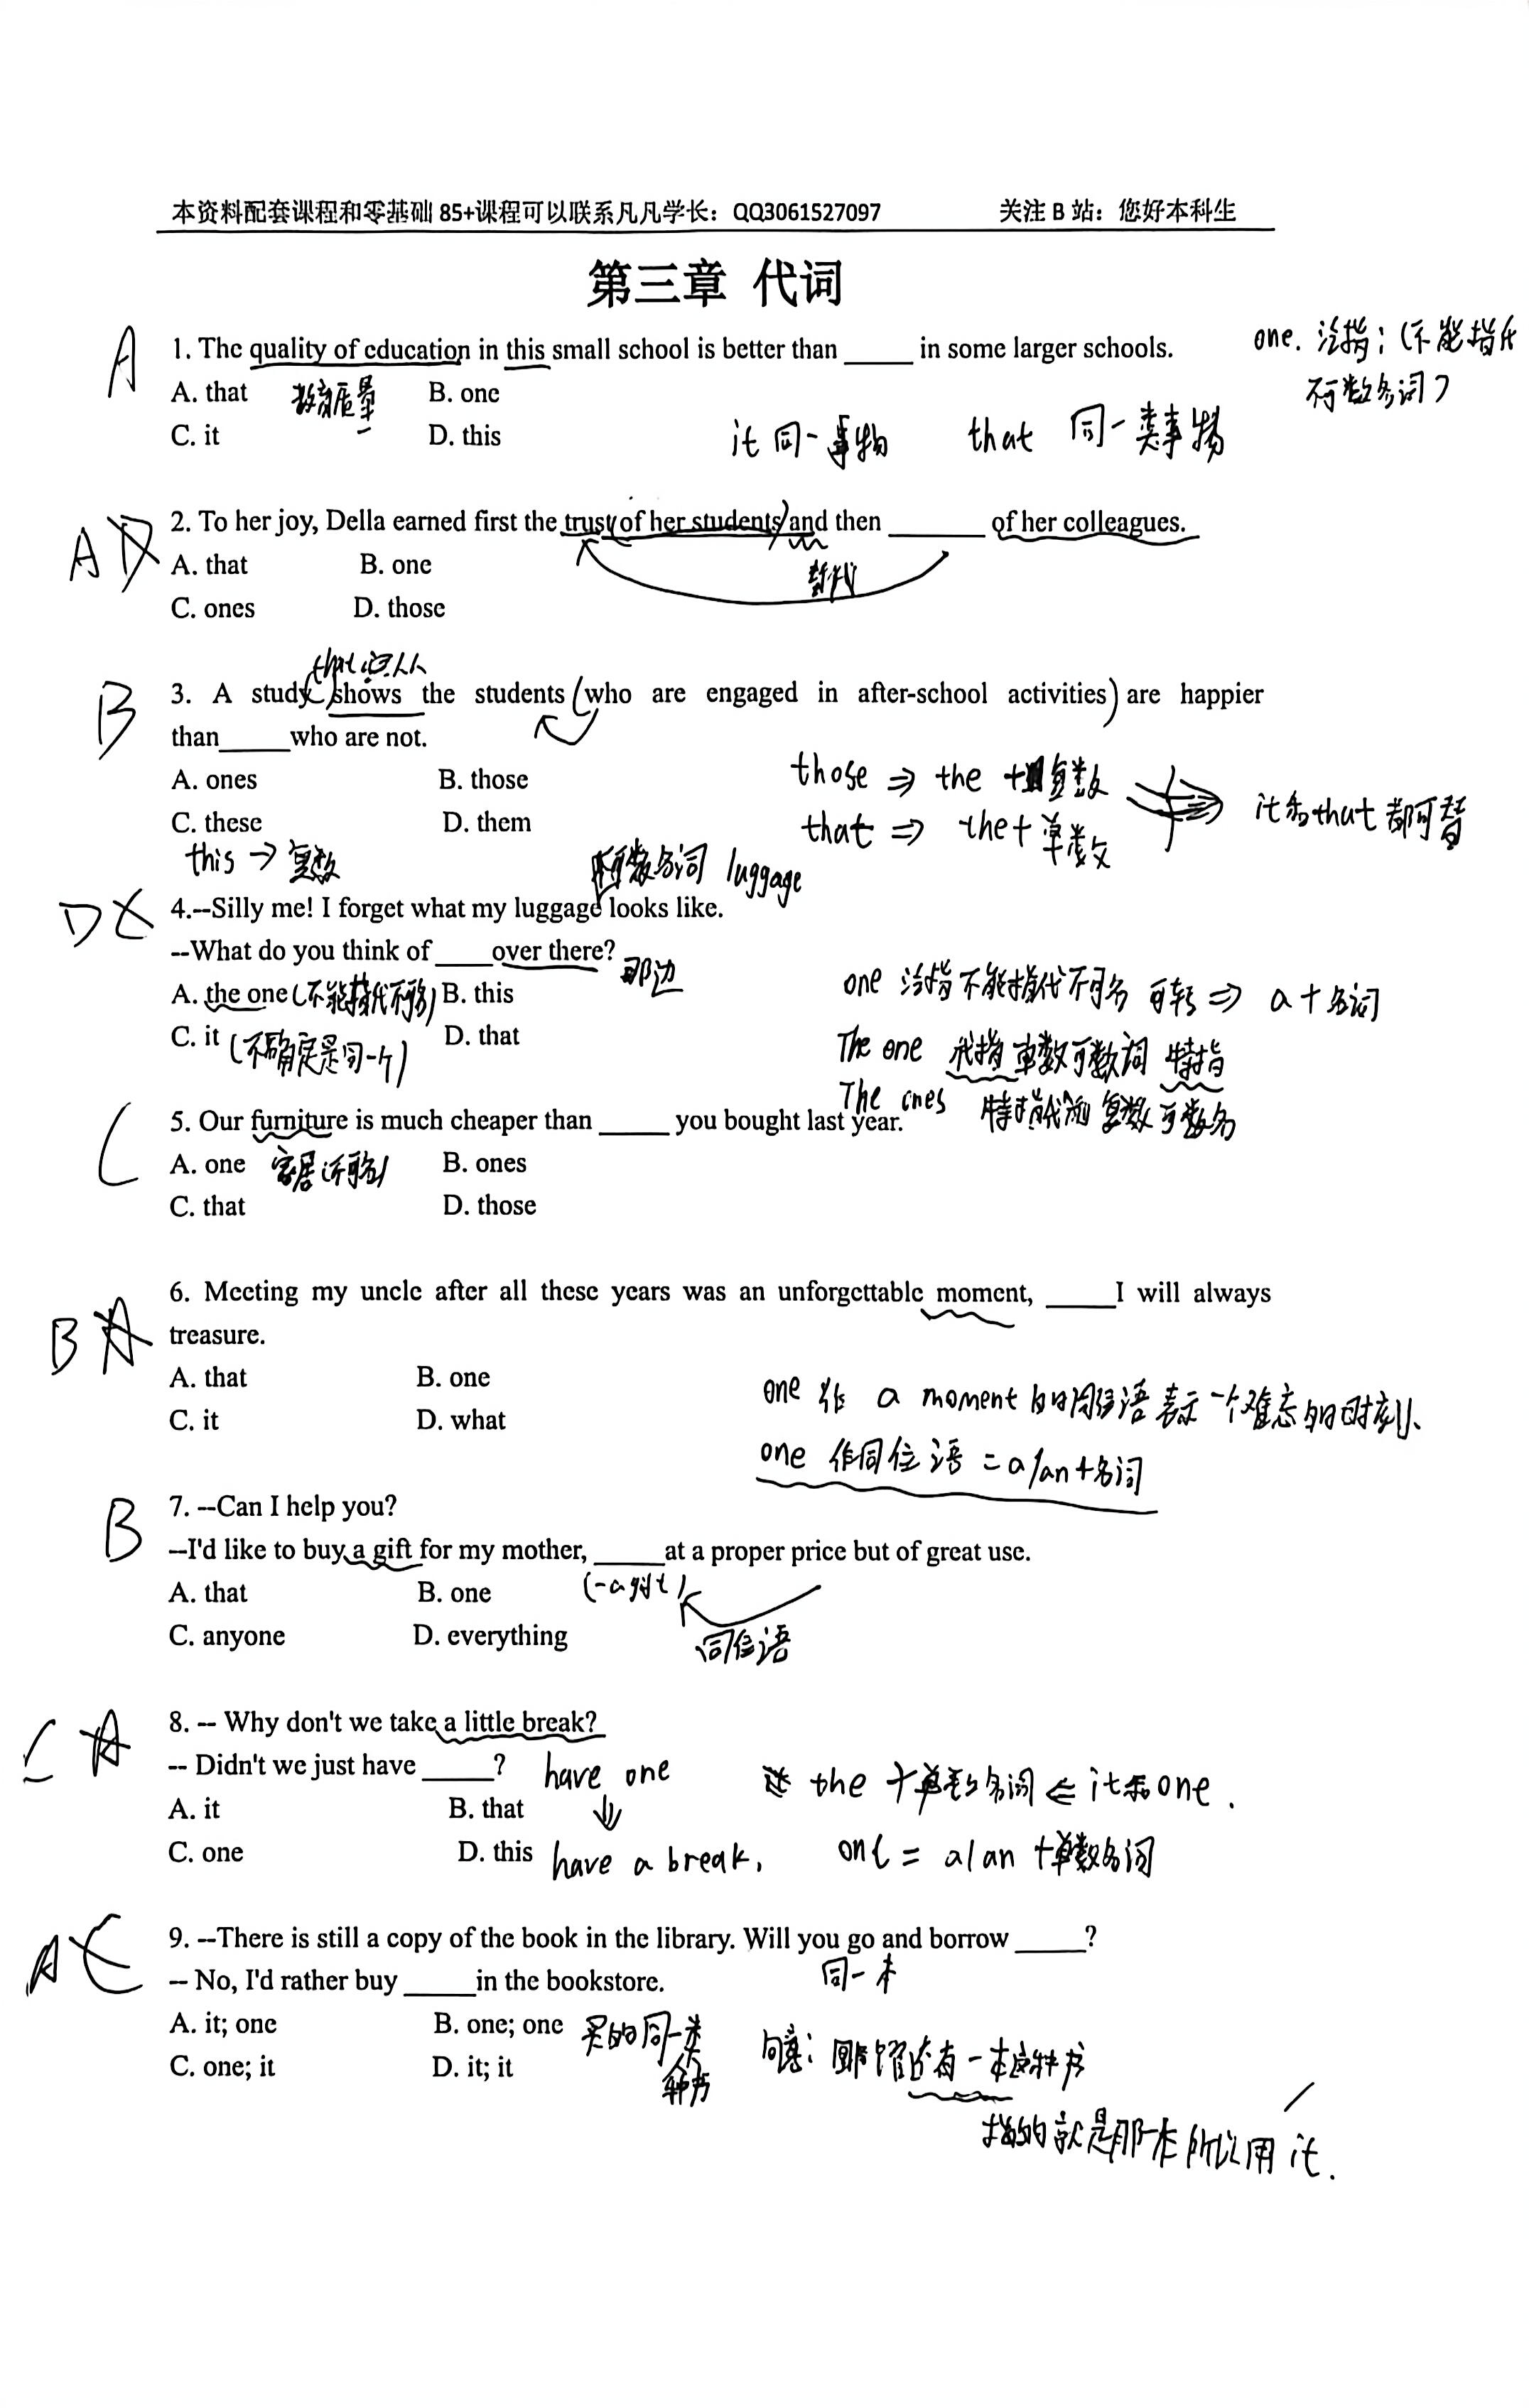 本资料配套课程和零基础 85+课程可以联系凡凡学长：QQ3061527097 关注 B 站：您好本科生
第三章 代词
A 1. The quality of education in this small school is better than _____ in some larger schools.
one. 泛指；(不能指代
不可数名词)
A. that 教育质量 B. one
C. it D. this
it 同一事物 that 同一类事物
A D 2. To her joy, Della earned first the trust (of her students) and then _______ of her colleagues.
A. that B. one 替代
C. ones D. those
that
B 3. A study shows the students (who are engaged in after-school activities) are happier
than_____who are not.
A. ones B. those
those ⇒ the + 复数
C. these D. them
that ⇒ the + 单数
it和that 都可替
this → 复数
不可数名词 luggage
D C 4.--Silly me! I forget what my luggage looks like.
--What do you think of ____over there? 那边
A. the one (不能指代不可名) B. this
one 泛指不能指代不可名 可转 ⇒ a + 名词
C. it (不确定是同一个) D. that
The one 代指 单数可数词 特指
The ones 特指代 复数可数名
C 5. Our furniture is much cheaper than _____ you bought last year.
A. one 家居(不可名) B. ones
C. that D. those
B A 6. Meeting my uncle after all these years was an unforgettable moment, _____I will always
treasure.
A. that B. one
one 作 a moment 的同位语 表示一个难忘的时刻、
C. it D. what
one 作同位语 = a/an+名词
B 7. --Can I help you?
--I'd like to buy a gift for my mother, _____at a proper price but of great use.
A. that B. one (-a gift)
C. anyone D. everything 同位语
C A 8. -- Why don't we take a little break?
-- Didn't we just have _____? have one
the + 单数名词 ⇐ it和one.
A. it B. that
C. one D. this have a break.
one = a/an + 单数名词
A C 9. --There is still a copy of the book in the library. Will you go and borrow _____?
-- No, I'd rather buy _____in the bookstore. 同一本
A. it; one B. one; one 买的同一类
C. one; it D. it; it
句意：图书馆还有一本这种书
指的就是那一本 所以用 it.